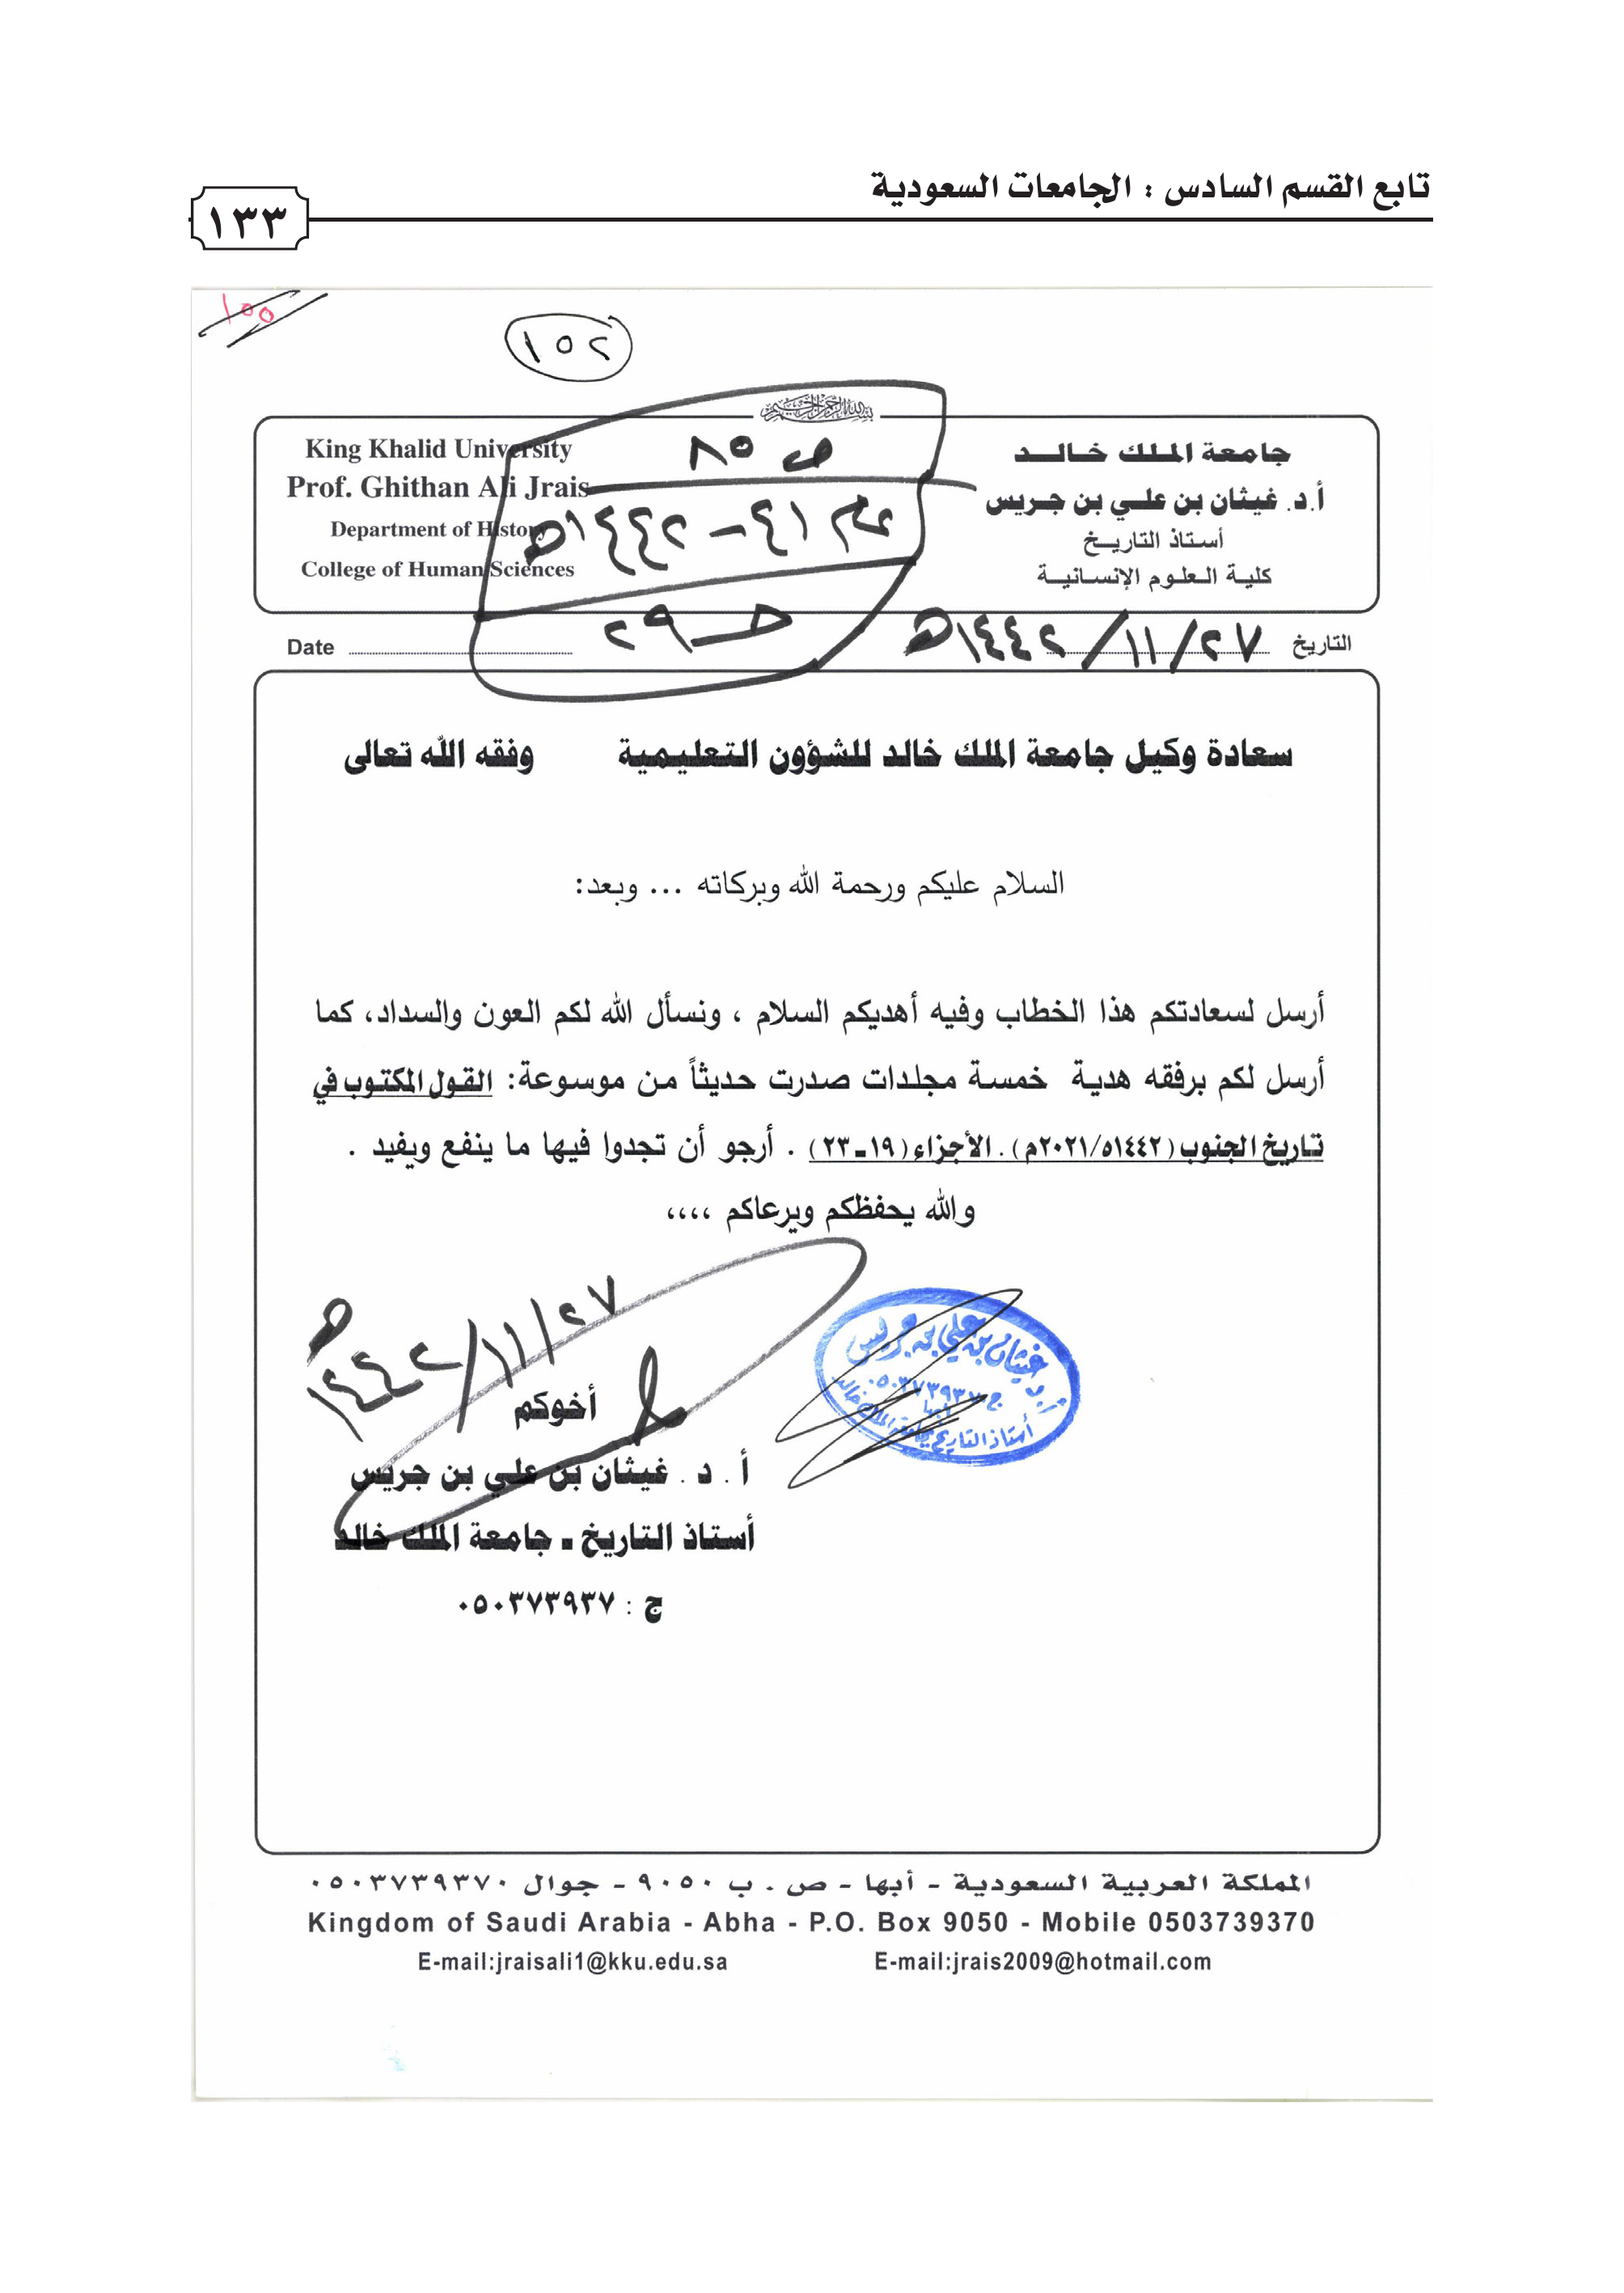 تابع القسم السادس : الجامعات السعودية
١٣٣
١٥٥
١٥٢
بسم الله الرحمن الرحيم
جامعة الملك خالد
أ.د. غيثان بن علي بن جريس
أستاذ التاريخ
كلية العلوم الإنسانية
King Khalid University
Prof. Ghithan Ali Jrais
Department of History
College of Human Sciences
ص ٨٥
عام ٤١ - ١٤٤٢هـ
حـ ٢٩
التاريخ ٢٧/١١/١٤٤٢هـ
Date
سعادة وكيل جامعة الملك خالد للشؤون التعليمية وفقه الله تعالى
السلام عليكم ورحمة الله وبركاته ... وبعد:
أرسل لسعادتكم هذا الخطاب وفيه أهديكم السلام ، ونسأل الله لكم العون والسداد، كما
أرسل لكم برفقه هدية خمسة مجلدات صدرت حديثاً من موسوعة: القول المكتوب في
تاريخ الجنوب (١٤٤٢ه/٢٠٢١م). الأجزاء (١٩-٢٣) . أرجو أن تجدوا فيها ما ينفع ويفيد .
والله يحفظكم ويرعاكم ،،،،
٢٧/١١/١٤٤٢هـ
أ.د غيثان بن علي بن جريس
ج ٠٥٠٣٧٣٩٣٧٠
أبها
أستاذ التاريخ بجامعة الملك خالد
أخوكم
أ . د . غيثان بن علي بن جريس
أستاذ التاريخ - جامعة الملك خالد
ج : ٠٥٠٣٧٣٩٣٧
المملكة العربية السعودية - أبها - ص . ب ٩٠٥٠ - جوال ٠٥٠٣٧٣٩٣٧٠
Kingdom of Saudi Arabia - Abha - P.O. Box 9050 - Mobile 0503739370
E-mail:jraisali1@kku.edu.sa E-mail:jrais2009@hotmail.com